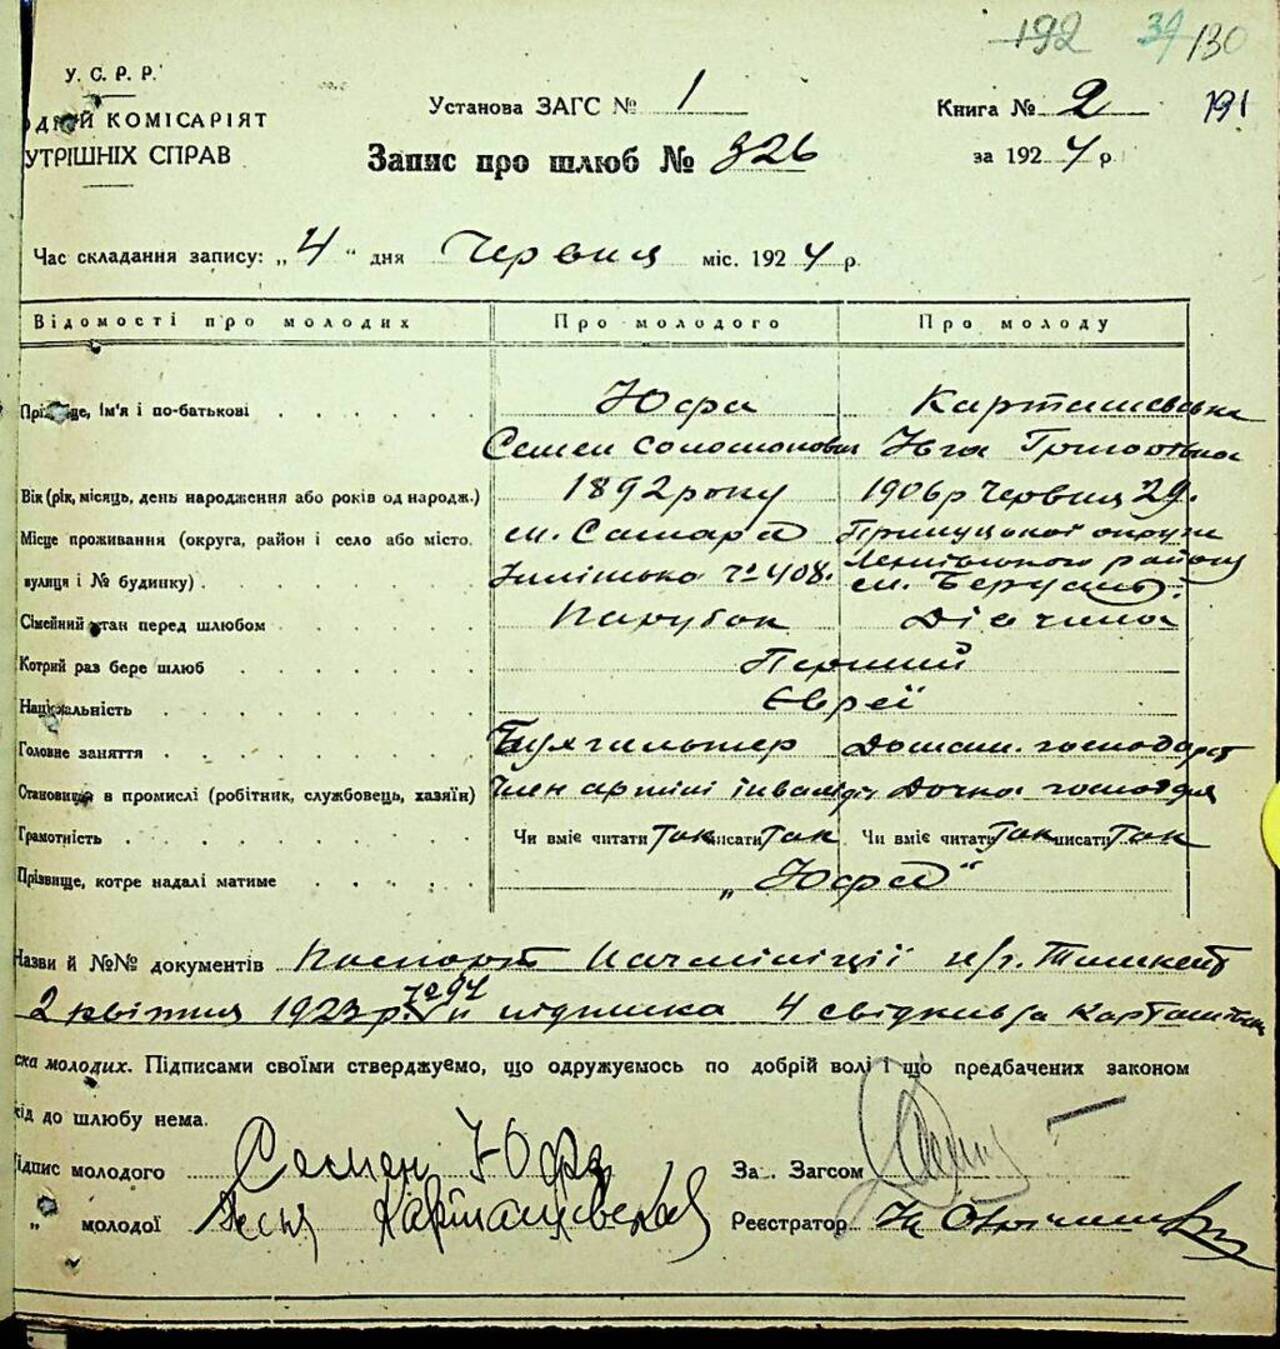 192 39 130
У. С. Р. Р.
Установа ЗАГС № 1
Книга № 2 191
КОМІСАРІЯТ
УТРІШНІХ СПРАВ
Запис про шлюб № 326
за 1924 р.
Час складання запису: „4“ дня Червня міс. 1924 р.
Відомості про молодих Про молодого Про молоду
ім'я і по-батькові Юфа Карташевська
Семен Соломонович
Вік (рік, місяць, день народження або років од народж.) 1892 року 1906 р Червня 29.
Місце проживання (округа, район і село або місто, м. Самара Прилуцької округи
вулиця і № будинку) № 408. району
м.
Сімейний стан перед шлюбом Парубок Дівчина
Котрий раз бере шлюб Перший
Національність Євреї
Головне заняття Бухгальтер Домаш. господарст
Становище в промислі (робітник, службовець, хазяїн) Член артілі інвалідів Дочка господаря
Грамотність Чи вміє читати Так писати Так Чи вміє читати Так писати Так
Прізвище, котре надалі матиме „Юфа“
Назви й №№ документів Паспорт Начміліції м/г. Ташкент
№ 94
2 квітня 1923 р. й підписка 4 свідків за
ска молодих. Підписами своїми стверджуємо, що одружуємось по добрій волі і що предбачених законом
кід до шлюбу нема.
ідпис молодого Семен Юфа За. Загсом
„ молодої Карташевская Реєстратор